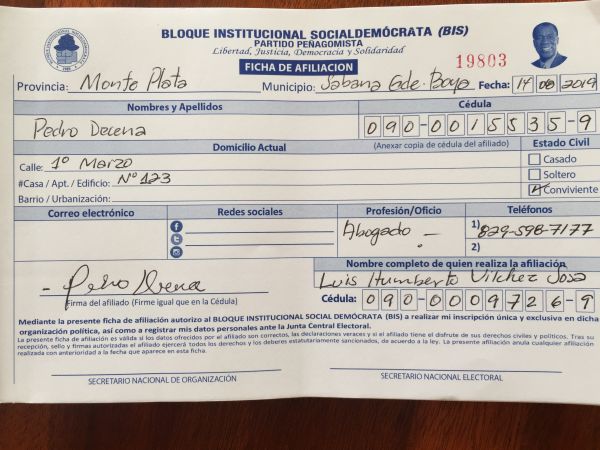 BLOQUE INSTITUCIONAL SOCIALDEMÓCRATA (BIS)
PARTIDO PEÑAGOMISTA
Libertad, Justicia, Democracia y Solidaridad
FICHA DE AFILIACION
19803
Provincia: Monte Plata Municipio: Sabana Gde. Boya Fecha: 14 08 2019
Nombres y Apellidos Cédula
Pedro Decena 090-0015535-9
Domicilio Actual (Anexar copia de cédula del afiliado) Estado Civil
Calle: 1º Marzo Casado
#Casa / Apt. / Edificio: Nº 123 Soltero
Barrio / Urbanización: Conviviente
Correo electrónico Redes sociales Profesión/Oficio Teléfonos
Abogado - 1) 829-598-7177
2)
Nombre completo de quien realiza la afiliación
Luis Humberto Vilchez Sosa
Firma del afiliado (Firme igual que en la Cédula) Cédula: 090-0009726-9
Mediante la presente ficha de afiliación autorizo al BLOQUE INSTITUCIONAL SOCIAL DEMÓCRATA (BIS) a realizar mi inscripción única y exclusiva en dicha
organización política, así como a registrar mis datos personales ante la Junta Central Electoral.
La presente ficha de afiliación es válida si los datos ofrecidos por el afiliado son correctos, las declaraciones veraces y si el afiliado tiene el disfrute de sus derechos civiles y políticos. Tras su
recepción, sello y firmas autorizadas el afiliado ejercerá todos los derechos y los deberes estatutariamente sancionados, de acuerdo a la ley. La presente afiliación anula cualquier afiliación
realizada con anterioridad a la fecha que aparece en esta ficha.
SECRETARIO NACIONAL DE ORGANIZACIÓN SECRETARIO NACIONAL ELECTORAL